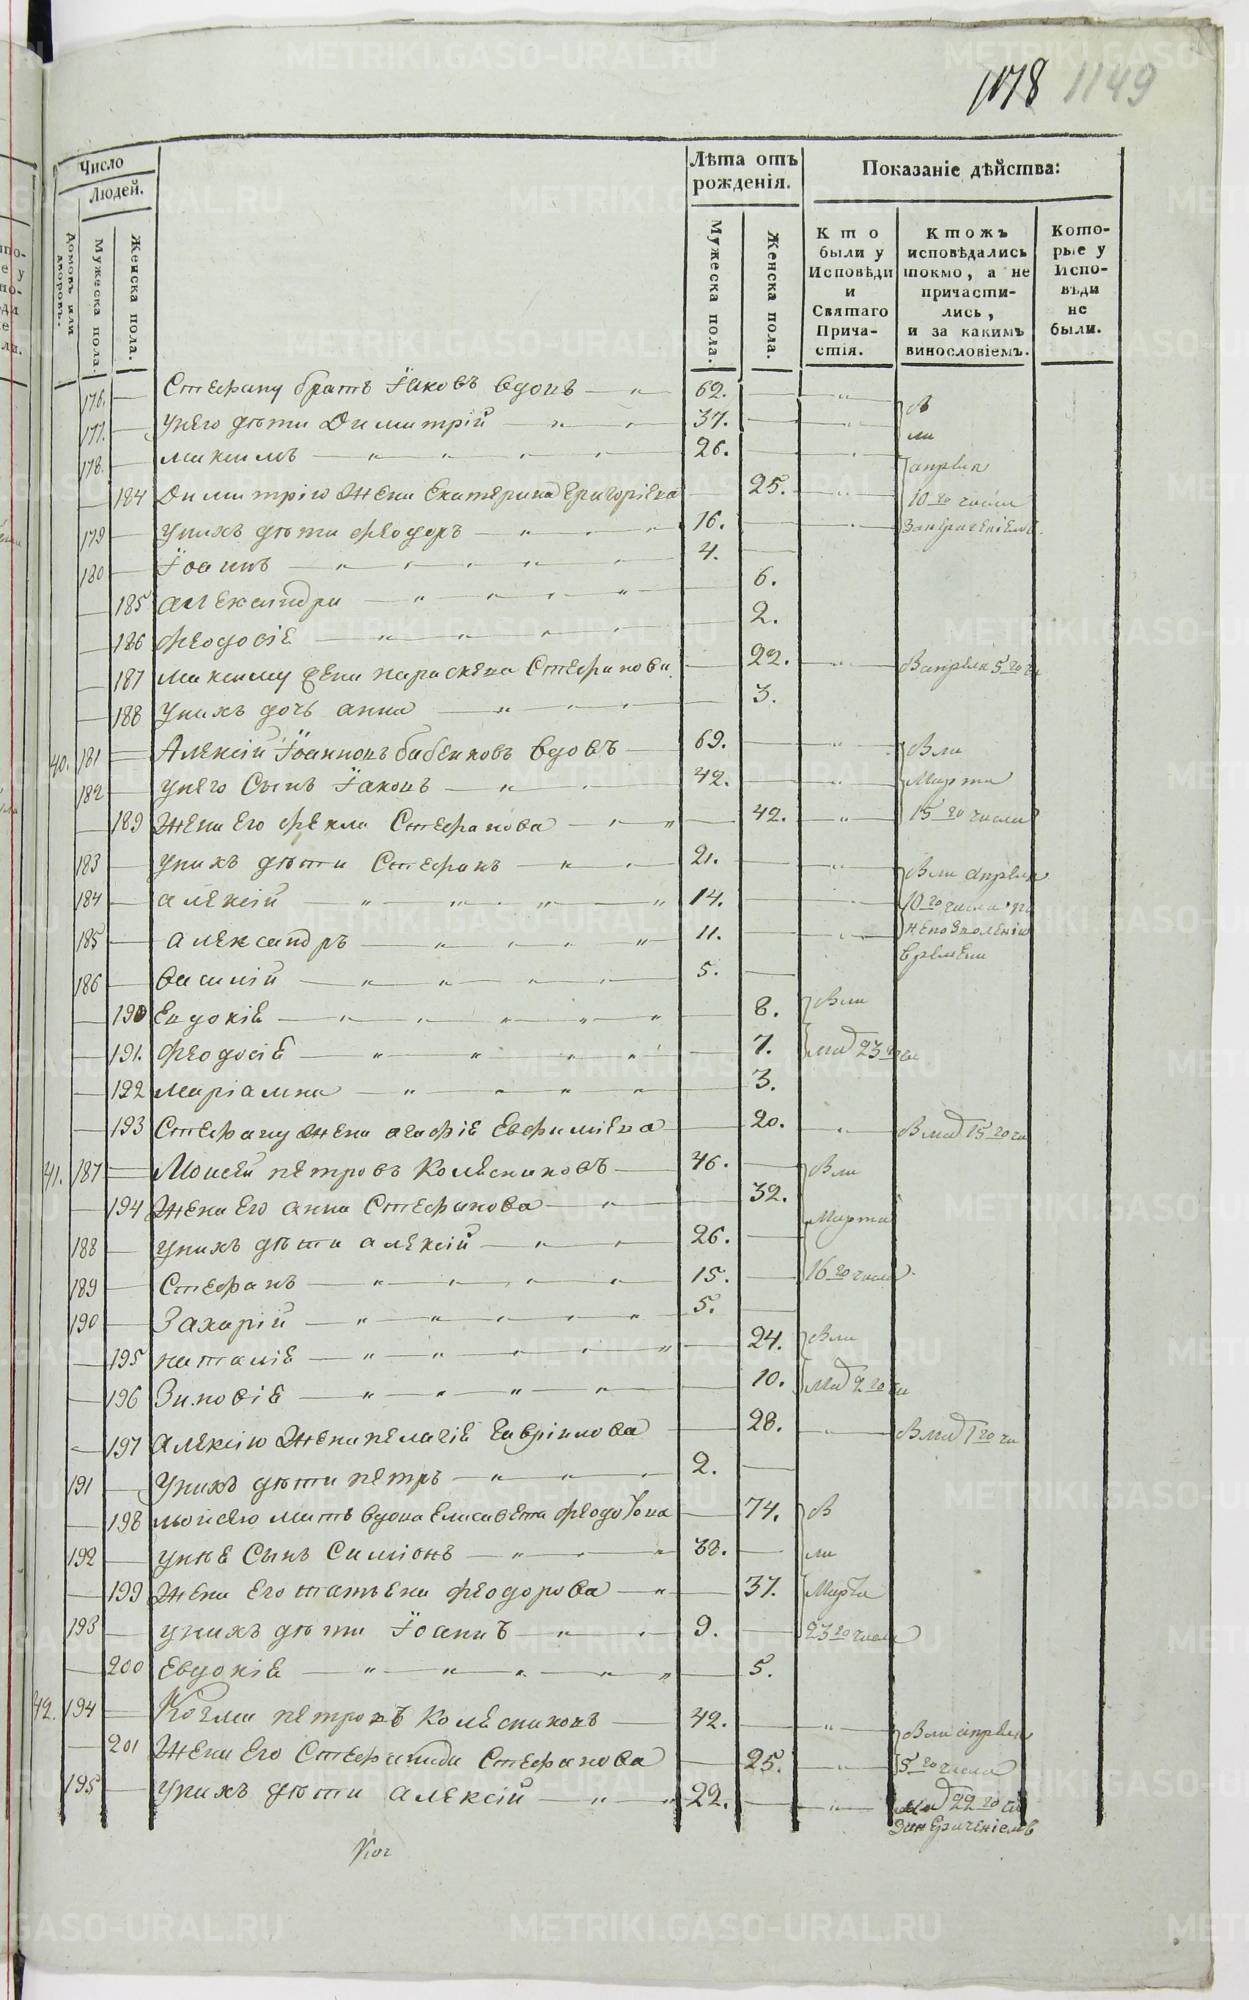 1178 1149
Число
Людей.
Домовъ или дворовъ.
Мужеска пола.
Женска пола.
Лѣта отъ рожденія.
Мужеска пола.
Женска пола.
Показаніе дѣйства:
Кто были у Исповѣди и Святаго Причастія.
Ктожъ исповѣдались токмо, а не причастились, и за какимъ винословіемъ.
Которые у Исповѣди не были.
176. Стефану братъ Іаковъ вдовъ 62. В
177. Унего дѣти Димитрій 37. ли
178. Максимъ 26. апреля
184 Димитрію жена Екатерина Григоріева 25. 10го числа
179 Унихъ дѣти Феодоръ 16.
180 Іоаннъ 4.
185 Александра 6.
186 Феодосіе 2.
187 Максиму жена Параскева Стефанова 22. В апреля 5го чи
188 Унихъ дочь Анна 3.
40. 181 Алексій Іоанновъ Бабенковъ вдовъ 69. В ли
182 Унего Сынъ Іаковъ 42. Марта
189 Жена Его Фекла Стефанова 42. 15го числа
183 Унихъ дѣти Стефанъ 21. В ли апреля
184 Алексій 14. 10го числа по
185 Александръ 11. непозволенію
186 Василій 5. времени
190 Евдокіе 8. В ли
191. Феодосіе 7. маія 23го чи
192 Маріамна 3.
193 Стефану жена Агафіе Евфиміева 20. В маія 15го чи
41. 187 Моисей Петровъ Колесниковъ 46. В ли
194 Жена Его Анна Стефанова 32. Марта
188 Унихъ дѣти Алексій 26.
189 Стефанъ 15. 16го числа
190 Захарій 5.
195 Наталіе 24. В ли
196 Зиновіе 10. Маія 2го чи
197 Алексію жена Пелагіе Гаврилова 28. В маія 1го чи
191 Унихъ дѣти Петръ 2.
198 Моисею мать вдова Елисавета Феодотова 74. В
192 Унее Сынъ Симіонъ 38. ли
199 Жена Его Татьяна Феодорова 37. Марта
193 Унихъ дѣти Іоаннъ 9. 23го числа
200 Евдокіе 5.
42. 194 Козма Петровъ Колесниковъ 42. В ли апреля
201 Жена Его Стефанида Стефанова 25. 5го числа
195 Унихъ дѣти Алексій 22. маія 22го чи
METRIKI.GASO-URAL.RU